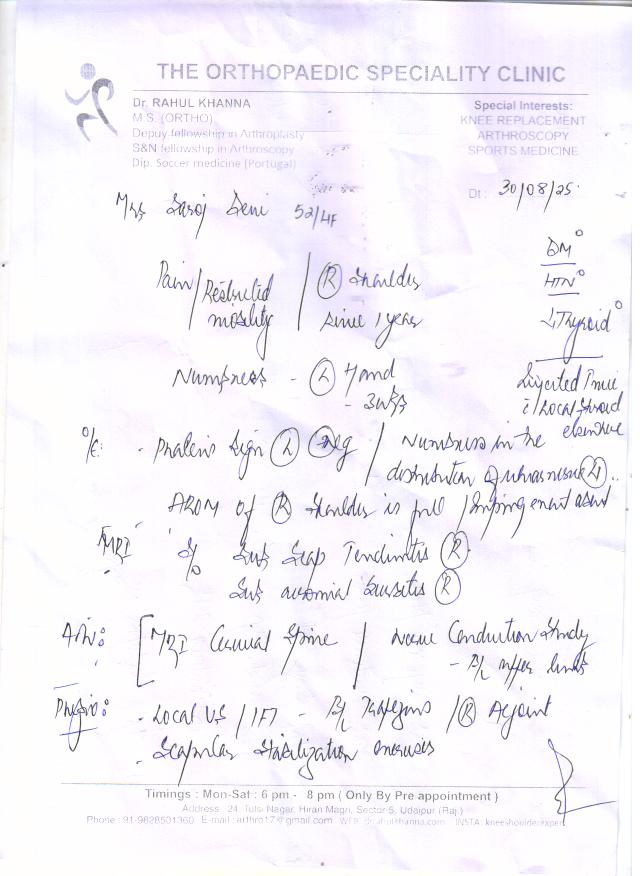 THE ORTHOPAEDIC SPECIALITY CLINIC
Dr. RAHUL KHANNA
M.S. (ORTHO)
Depuy fellowship in Arthroplasty
S&N fellowship in Arthroscopy
Dip. Soccer medicine (Portugal)
Special Interests:
KNEE REPLACEMENT
ARTHROSCOPY
SPORTS MEDICINE
Dt : 30/08/25
Mrs Saroj Devi 52/F
DM°
HTN°
Thyroid°
Pain / Restricted mobility / (R) Shoulder since 1 year
Numbness - (L) Hand
- 3 wks
Injected
Local Steroid
elsewhere
O/E: · Phalen's Sign (L) Neg / Numbness in the
distribution of (L)
AROM of (R) Shoulder is full / Impingement
MRI S/o Sub Scap Tendinitis (R)
Sub acromial bursitis (R)
Adv: [ MRI Cervical Spine / Nerve Conduction Study
- B/L upper limbs
Physio: · Local US / IFT - B/L Trapezius / (R) AC joint
· Scapular Stabilization exercises
Timings : Mon-Sat : 6 pm - 8 pm ( Only By Pre appointment )
Address : 24, Tulsi Nagar, Hiran Magri, Sector-5, Udaipur (Raj.)
Phone : 91-9828501360 E-mail : arthro17@gmail.com WEB: drrahulkhanna.com INSTA: kneeshoulderexpert